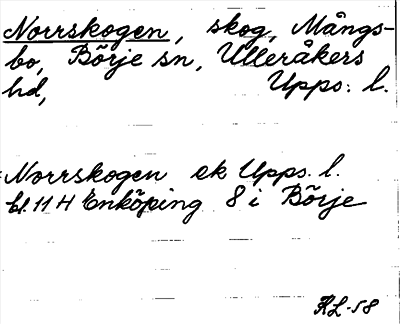 Norrskogen, skog, Mångs-
bo, Börje sn, Ulleråkers
hd, Upps. l.
Norrskogen ek Upps. l.
bl. 11 H Enköping 8 i Börje
KL-58